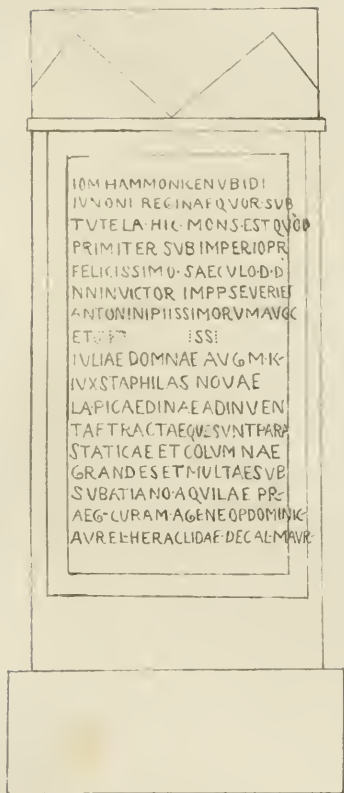 IOM HAMMONICENVBIDI
IVNONI REGINAE QVOR·SVB
TVTELA·HIC·MONS·EST QVOD
PRIMITER SVB IMPERIO PR
FELICISSIMO·SAECVLO·D·D
NN INVICTOR IMPP SEVERI ET
ANTONINI PIISSIMORVM AVGG
ET ISSI
IVLIAE DOMNAE AVG M·K·
IVXSTA PHILAS NOVAE
LAPICAEDINAE ADINVEN
TAE TRACTAEQVE SVNT PARA
STATICAE ET COLVMNAE
GRANDES ET MVLTAE SVB
SVBATIANO·AQVILAE PR·
AEG·CVRAM·AGENE OP DOMINIC·
AVREL·HERACLIDAE·DEC AL·MAVR·